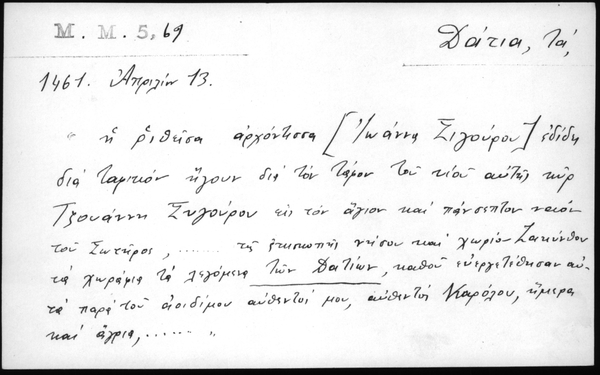 M. M. 5, 69
Δάτια, τά,
1461. Ἀπριλίῳ 13.
" ἡ ῥιθεῖσα ἀρχόντισσα [Ἰωάννη Σιγούρου] ἐδίδη
διά ταμικιόν ἤγουν διά τόν τάμον τοῦ υἱοῦ αὐτῆς κῦρ
Τζουάννη Συγούρου εἰς τόν ἅγιον καί πάνσεπτον ναόν
τοῦ Σωτῆρος, ........ τῆς ἐπισκοπῆς νήσου καί χωρίον Ζακύνθου
τά χωράφια τά λεγόμενα τῶν Δατίων, καθοῦ εὐεργετέθησαν αὐ-
τά παρά τοῦ ἀοιδίμου αὐθεντοῦ μου, αὐθεντοῦ Καρόλου, ἥμερα
καί ἄγρια, ...... "